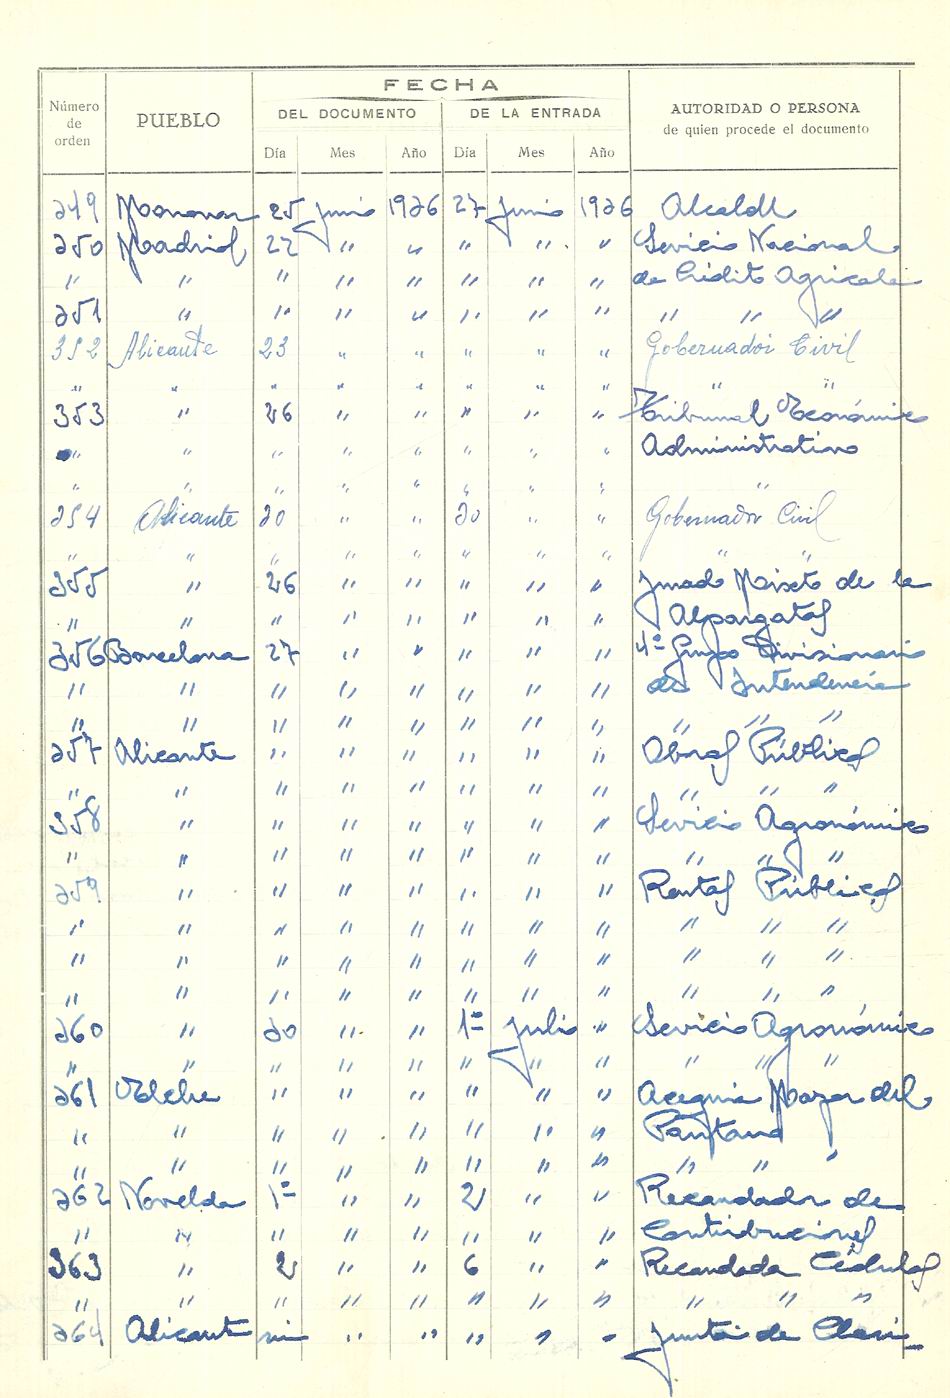 FECHA
Número de orden PUEBLO DEL DOCUMENTO DE LA ENTRADA AUTORIDAD O PERSONA de quien procede el documento
Día Mes Año Día Mes Año
349 Monovar 25 junio 1936 27 junio 1936 Alcalde
350 Madrid 22 " " " " " Servicio Nacional
" " " " " " " " de Crédito Agricola
351 " " " " " " " " " "
352 Alicante 23 " " " " " Gobernador Civil
" " " " " " " " " "
353 " 26 " " " " " Tribunal Económico
" " " " " " " " Administrativo
" " " " " " " " "
354 Alicante 20 " " 30 " " Gobernador Civil
" " " " " " " " " "
355 " 26 " " " " " Jurado Mixto de la
" " " " " " " " Alpargatas
356 Barcelona 27 " " " " " 4º Grupo Divisionario
" " " " " " " " de Intendencia
" " " " " " " " " " "
357 Alicante " " " " " " Obras Públicas
" " " " " " " " " " "
358 " " " " " " " Servicio Agronómico
" " " " " " " " " " "
359 " " " " " " " Rentas Públicas
" " " " " " " " " " "
" " " " " " " " " " "
" " " " " " " " " " "
360 " 30 " " 1º Julio " Servicio Agronómico
" " " " " " " " " " "
361 Elche " " " " " " Acequia Mayor del
" " " " " " " " Pantano
" " " " " " " " " "
362 Novelda 1º " " 2 " " Recaudador de
" " " " " " " " Contribuciones
363 " 2 " " 6 " " Recaudada Cédulas
" " " " " " " " " " "
364 Alicante sin " " " " " Junta de Clasi-